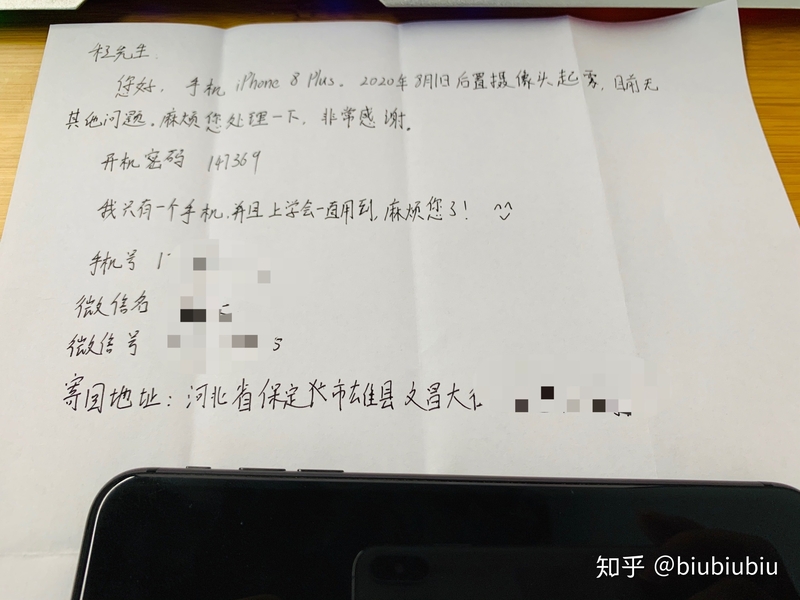 程先生.
您好, 手机 iPhone 8 Plus. 2020年8月1日后置摄像头起雾, 目前无
其他问题。麻烦您处理一下, 非常感谢。
开机密码 147369
我只有一个手机, 并且上学会一直用到, 麻烦您了! ^^
手机号 1
微信名
微信号 5
寄回地址: 河北省保定市雄县文昌大
知乎 @biubiubiu